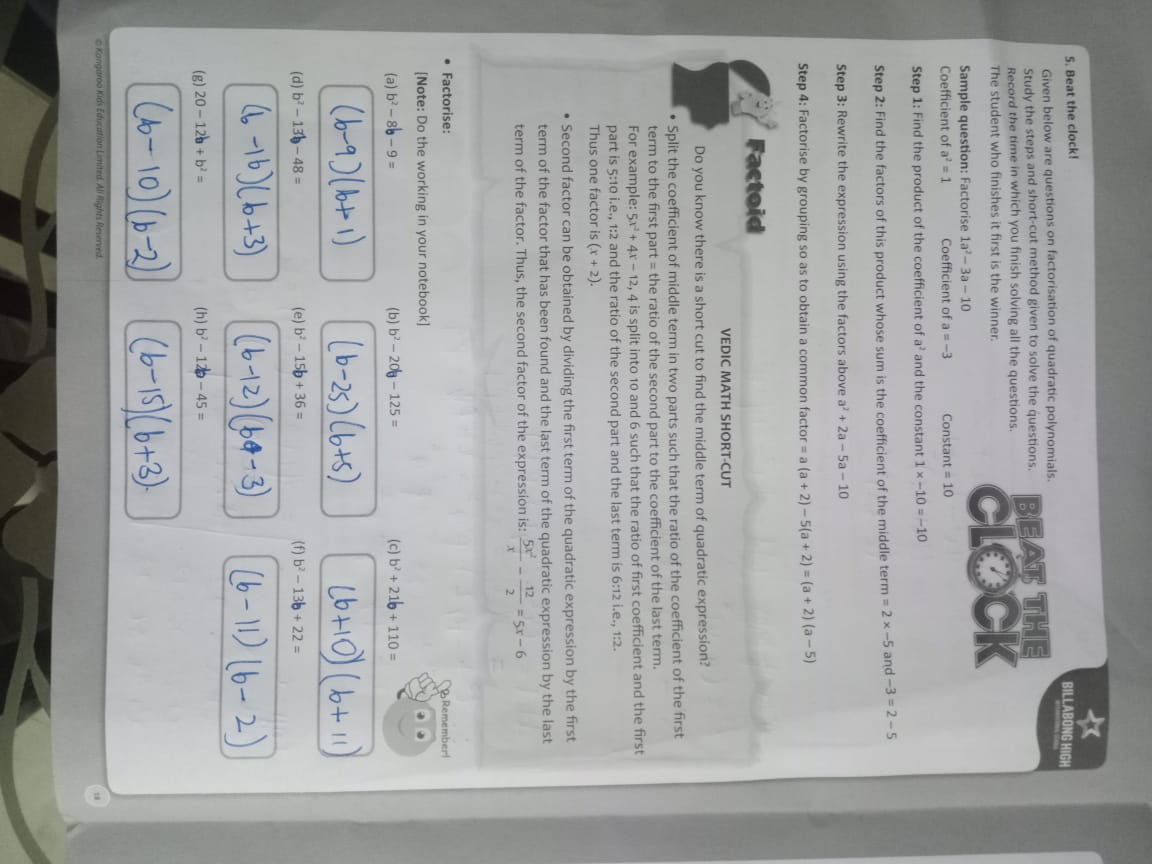 5. Beat the clock!
BILLABONG HIGH
Given below are questions on factorisation of quadratic polynomials.
Study the steps and short-cut method given to solve the questions.
Record the time in which you finish solving all the questions.
The student who finishes it first is the winner.
BEAT THE
CLOCK
Sample question: Factorise 1a² – 3a – 10
Coefficient of a² = 1 Coefficient of a = –3 Constant = 10
Step 1: Find the product of the coefficient of a² and the constant 1 × –10 = –10
Step 2: Find the factors of this product whose sum is the coefficient of the middle term = 2 × –5 and –3 = 2 – 5
Step 3: Rewrite the expression using the factors above a² + 2a – 5a – 10
Step 4: Factorise by grouping so as to obtain a common factor = a (a + 2) – 5(a + 2) = (a + 2) (a – 5)
Factoid
VEDIC MATH SHORT-CUT
Do you know there is a short cut to find the middle term of quadratic expression?
• Split the coefficient of middle term in two parts such that the ratio of the coefficient of the first
term to the first part = the ratio of the second part to the coefficient of the last term.
For example: 5x² + 4x – 12, 4 is split into 10 and 6 such that the ratio of first coefficient and the first
part is 5:10 i.e., 1:2 and the ratio of the second part and the last term is 6:12 i.e., 1:2.
Thus one factor is (x + 2).
• Second factor can be obtained by dividing the first term of the quadratic expression by the first
term of the factor that has been found and the last term of the quadratic expression by the last
term of the factor. Thus, the second factor of the expression is: 5x²/x – 12/2 = 5x – 6
• Factorise:
Remember!
[Note: Do the working in your notebook]
(a) b² – 8b – 9 = (b) b² – 20b – 125 = (c) b² + 21b + 110 =
(b-9)(b+1) (b-25)(b+5) (b+10)(b+11)
(d) b² – 13b – 48 = (e) b² – 15b + 36 = (f) b² – 13b + 22 =
(b-16)(b+3) (b-12)(b-3) (b-11)(b-2)
(g) 20 – 12b + b² = (h) b² – 12b – 45 =
(b-10)(b-2) (b-15)(b+3).
© Kangaroo Kids Education Limited. All Rights Reserved.
18